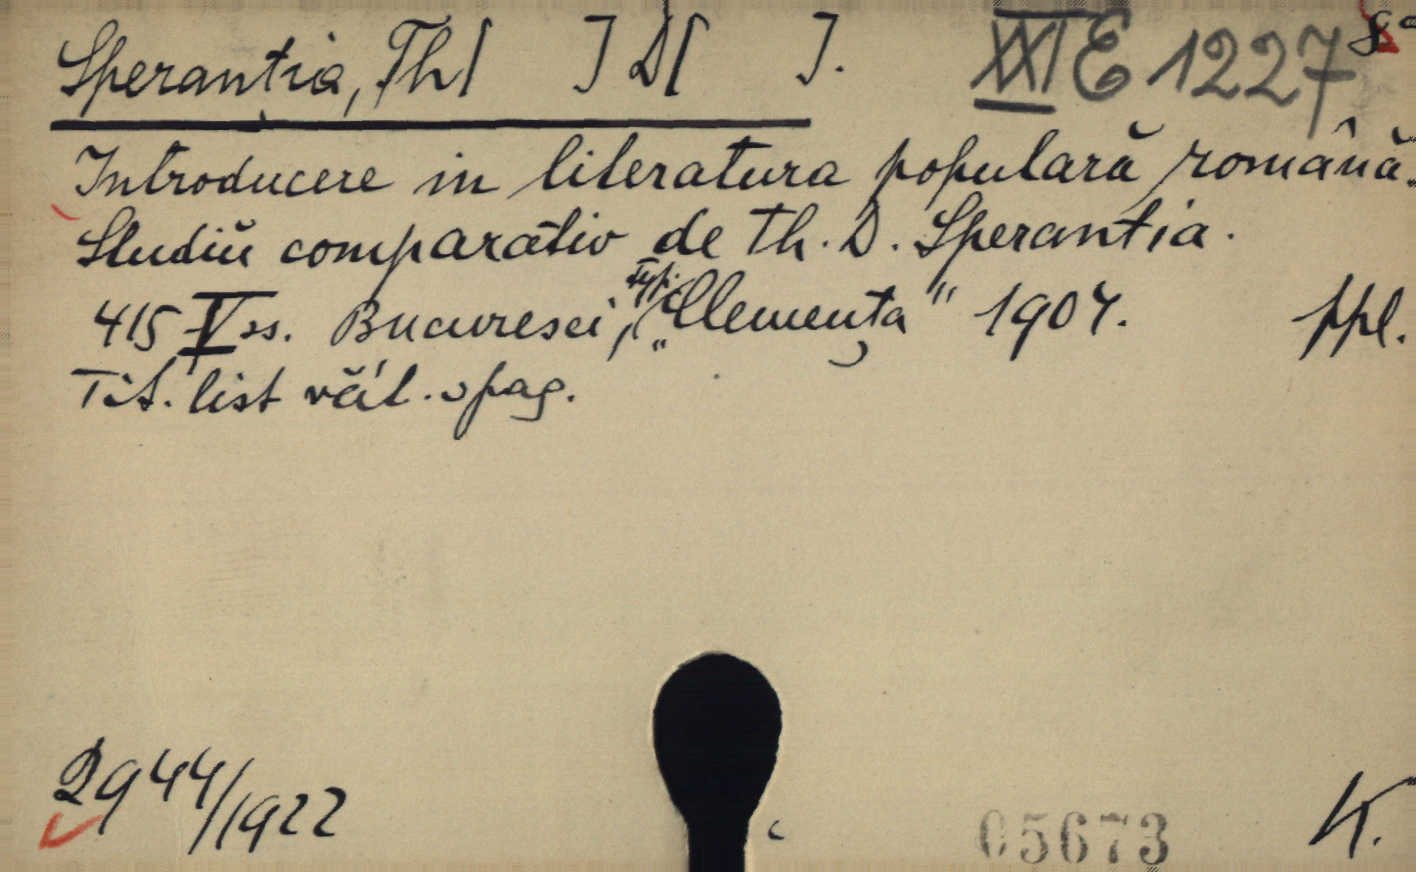 Sperantia, Th[ ] D[ ]. XXI E 1227 8°
Introducere in literatura populară română.
Studiŭ comparativ de Th. D. Sperantia.
415 V ss. Bucuresci, Typ. „Clemența" 1904. ppl.
Tit. list včít. v pag.
2944/1922
05673 K.